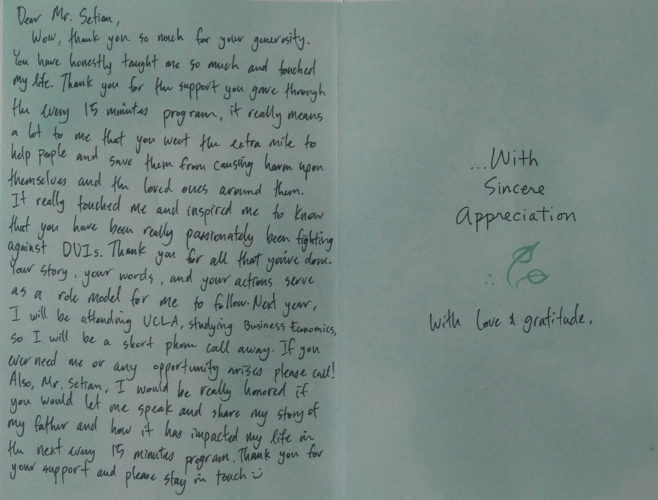 Dear Mr. Setian,
Wow, thank you so much for your generosity.
You have honestly taught me so much and touched
my life. Thank you for the support you gave through
the every 15 minutes program, it really means
a lot to me that you went the extra mile to
help people and save them from causing harm upon
themselves and the loved ones around them.
It really touched me and inspired me to know
that you have been really passionately been fighting
against DUIs. Thank you for all that you've done.
Your story, your words, and your actions serve
as a role model for me to follow. Next year,
I will be attending UCLA, studying Business Economics,
so I will be a short phone call away. If you
ever need me or any opportunity arises please call!
Also, Mr. Setian, I would be really honored if
you would let me speak and share my story of
my father and how it has impacted my life in
the next every 15 minutes program. Thank you for
your support and please stay in touch :)
...With
Sincere
Appreciation
With love & gratitude,